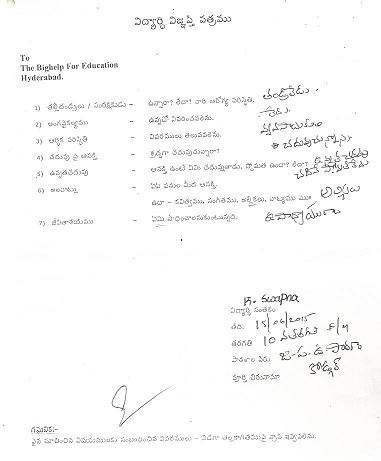 విద్యార్థి విజ్ఞప్తి పత్రము
To
The Bighelp For Education
Hyderabad.
1) తల్లిదండ్రులు / సంరక్షకుడు – ఉన్నారా? లేదా? వారి ఆరోగ్య పరిస్థితి. తండ్రిలేడు.
2) అంగవైకల్యము – ఉన్నచో వివరించవలెను. లేదు.
3) ఆర్థిక పరిస్థితి – వివరములు తెలుపవలెను. వ్యవసాయం
4) చదువు పై ఆసక్తి – శ్రద్ధగా చదువుచున్నారా? చదువుచున్నాను
5) ఉన్నతచదువు – ఆసక్తి ఉంటే ఏమి చదువుతాడు, స్తోమత ఉందా? లేదా?
6) అలవాట్లు – ఏఏ పనుల మీద ఆసక్తి.
ఉదా – కవిత్వము, సంగీతము, అల్లికలు, నాట్యము మొ॥
7) జీవితాశయము – ఏమి సాధించాలనుకుంటున్నది. ఉపాధ్యాయురాలు
K. Swapna
విద్యార్థి సంతకం
తేది: 15/06/2015
తరగతి 10 వతరగతి E/M
పాఠశాల పేరు జి.ప.ఉ.పాఠశాల
పూర్తి చిరునామా కోడ్గల్
గమనిక:-
పైన సూచించిన విషయములకు సంబంధించిన వివరములు – విడిగా తెల్లకాగితముపై వ్రాసి ఇవ్వవలెను.